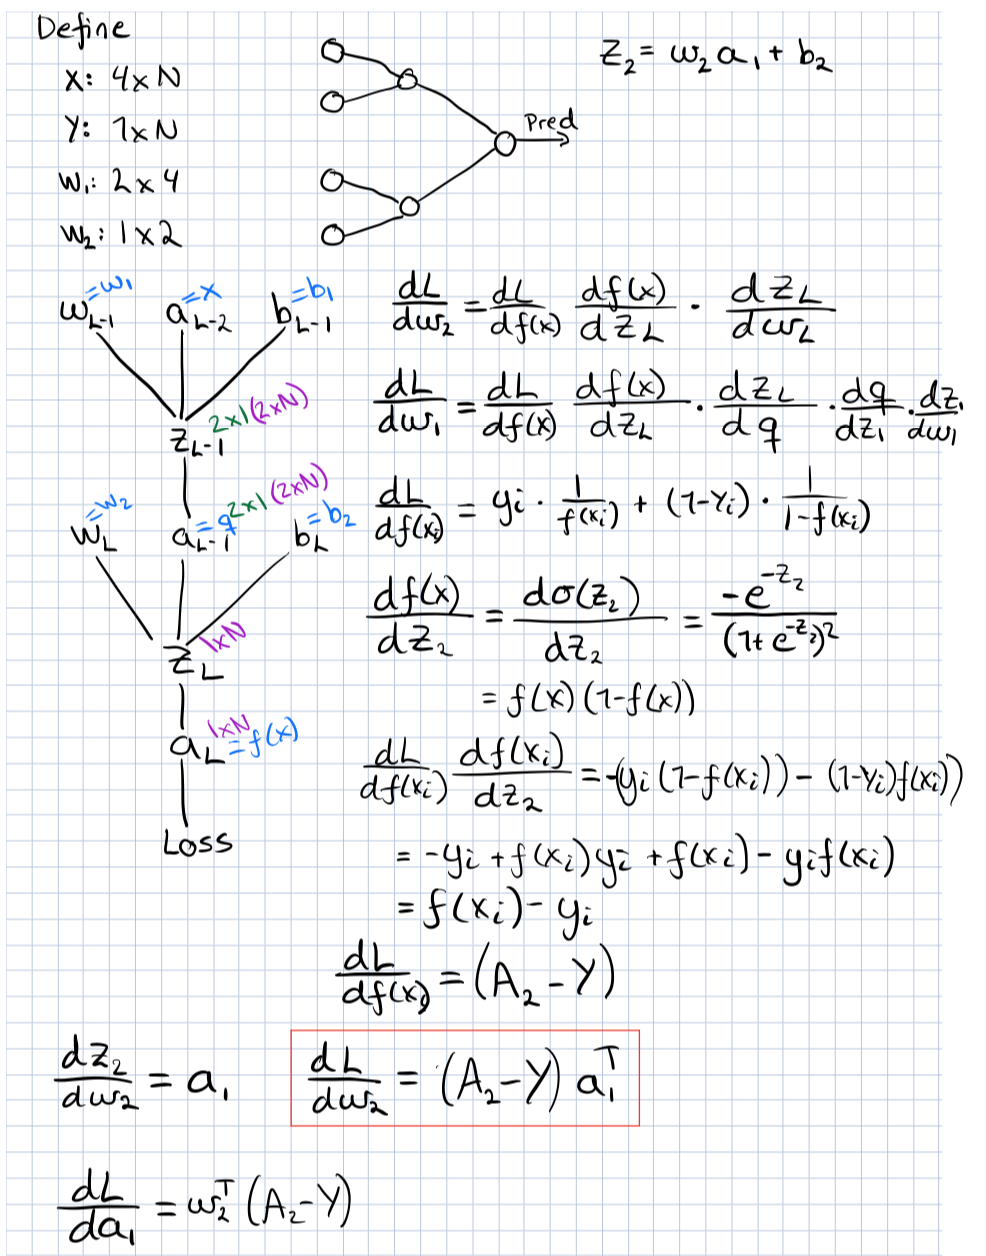 Define
X: 4×N
Y: 1×N
W₁: 2×4
W₂: 1×2
Pred
Z₂ = w₂a₁ + b₂
w_{L-1} =w₁ a_{L-2} =x b_{L-1} =b₁
z_{L-1} 2×1 (2×N)
w_L =w₂ a_{L-1} =q 2×1 (2×N) b_L =b₂
z_L 1×N
a_L =f(x) 1×N
Loss
dL/dw₂ = dL/df(x) df(x)/dz_L · dz_L/dw_L
dL/dw₁ = dL/df(x) df(x)/dz_L · dz_L/dq · dq/dz₁ · dz₁/dw₁
dL/df(xᵢ) = yᵢ · 1/f(xᵢ) + (1-Yᵢ) · 1/1-f(xᵢ)
df(x)/dz₂ = dσ(z₂)/dz₂ = -e^{-z₂}/(1+e^{-z₂})²
= f(x)(1-f(x))
dL/df(xᵢ) df(xᵢ)/dz₂ = -(yᵢ(1-f(xᵢ)) - (1-Yᵢ)f(xᵢ))
= -yᵢ + f(xᵢ)yᵢ + f(xᵢ) - yᵢf(xᵢ)
= f(xᵢ) - yᵢ
dL/df(x) = (A₂-Y)
dz₂/dw₂ = a₁
dL/dw₂ = (A₂-Y) a₁ᵀ
dL/da₁ = w₂ᵀ (A₂-Y)